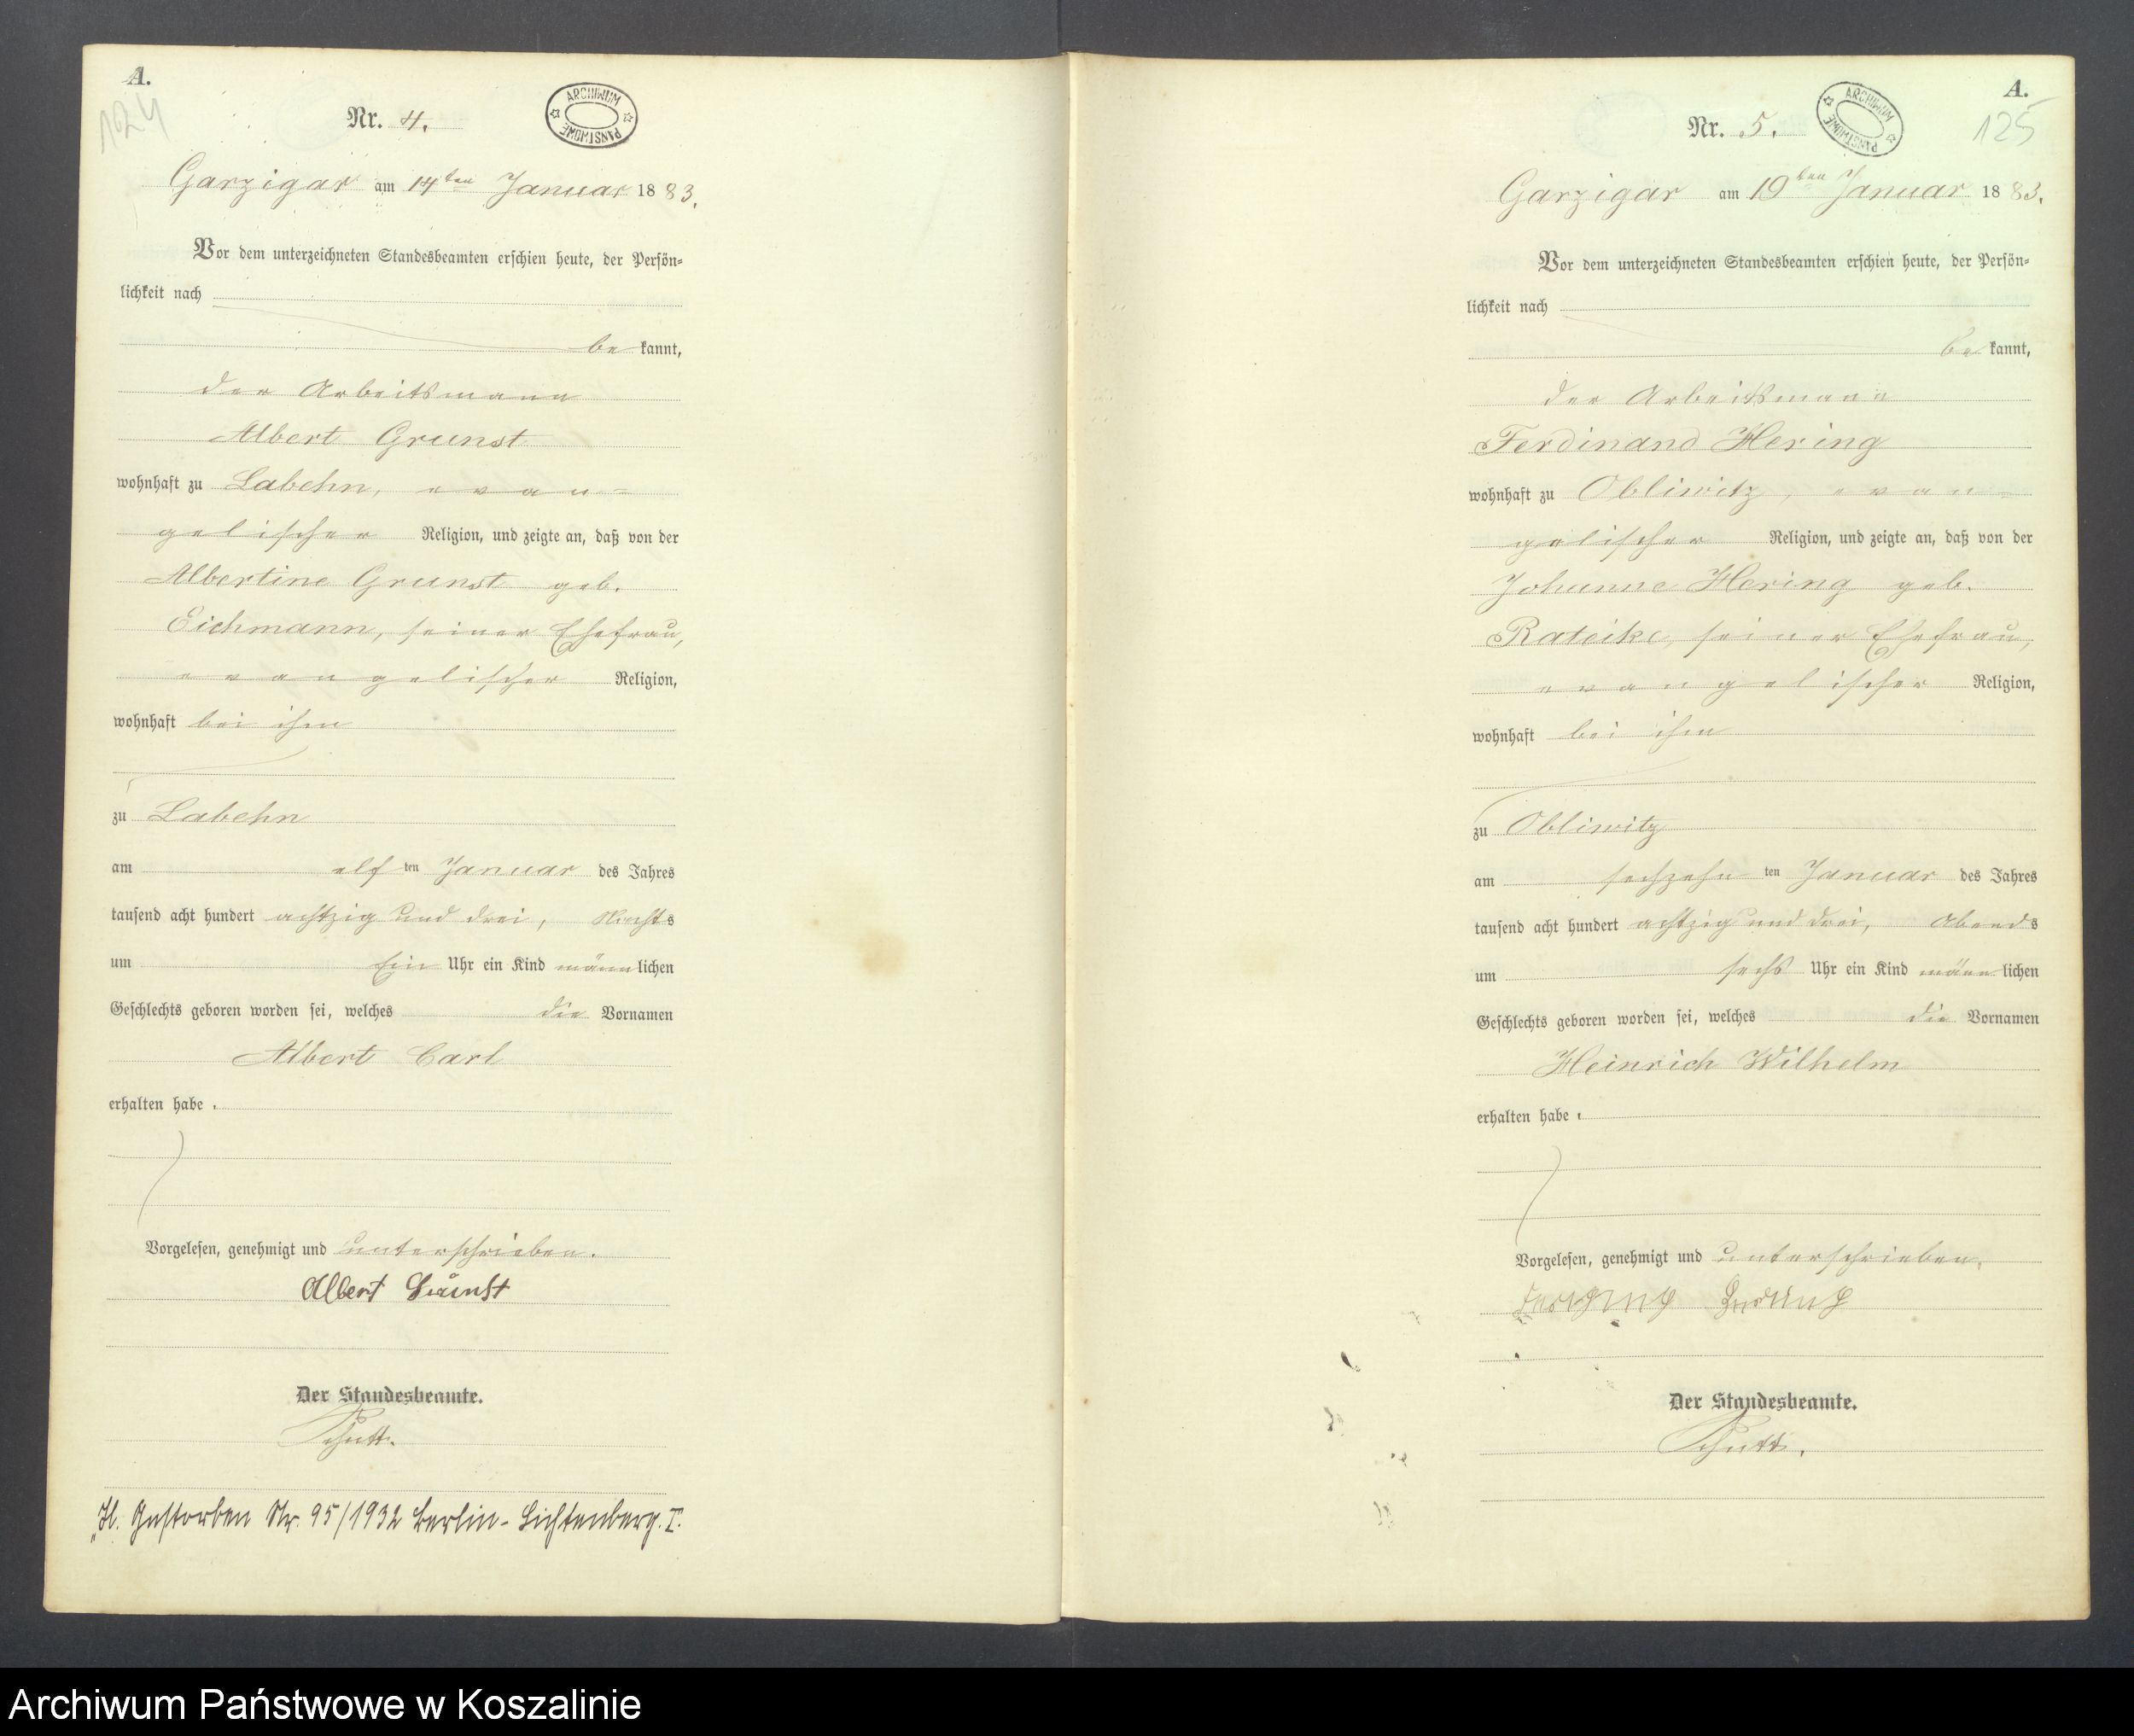 A.
124
Nr. 4.
ARCHIWUM PAŃSTWOWE
Garzigar am 14ten Januar 1883.
Vor dem unterzeichneten Standesbeamten erschien heute, der Persön-
lichkeit nach
bekannt,
der Arbeitsmann
Albert Grunst
wohnhaft zu Labehn, evan-
gelischer Religion, und zeigte an, daß von der
Albertine Grunst geb.
Eichmann, seiner Ehefrau,
evangelischer Religion,
wohnhaft bei ihm
zu Labehn
am elften Januar des Jahres
tausend acht hundert achtzig und drei, Nachts
um Ein Uhr ein Kind männlichen
Geschlechts geboren worden sei, welches die Vornamen
Albert Carl
erhalten habe.
Vorgelesen, genehmigt und unterschrieben.
Albert Grunst
Der Standesbeamte.
Schutt.
Gestorben Nr. 95/1932 Berlin-Lichtenberg. I.
A.
125
Nr. 5.
ARCHIWUM PAŃSTWOWE
Garzigar am 19ten Januar 1883.
Vor dem unterzeichneten Standesbeamten erschien heute, der Persön-
lichkeit nach
bekannt,
der Arbeitsmann
Ferdinand Hering
wohnhaft zu Obliwitz, evan-
gelischer Religion, und zeigte an, daß von der
Johanne Hering geb.
Rateike, seiner Ehefrau,
evangelischer Religion,
wohnhaft bei ihm
zu Obliwitz
am sechzehnten Januar des Jahres
tausend acht hundert achtzig und drei, Abends
um sechs Uhr ein Kind männlichen
Geschlechts geboren worden sei, welches die Vornamen
Heinrich Wilhelm
erhalten habe.
Vorgelesen, genehmigt und unterschrieben.
Der Standesbeamte.
Schutt.
Archiwum Państwowe w Koszalinie